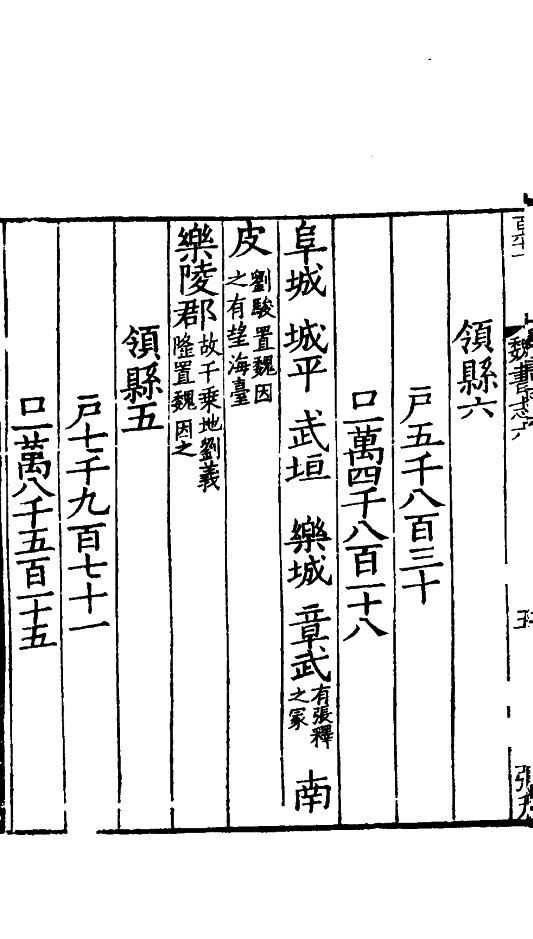 魏書志六
領縣六
戸五千八百三十
口一萬四千八百一十八
阜城 城平 武垣 樂城 章武 有張釋之冢 南
皮 劉駿置魏因之有望海臺
樂陵郡 故千乘地劉義隆置魏因之
領縣五
戸七千九百七十一
口一萬八千五百一十五